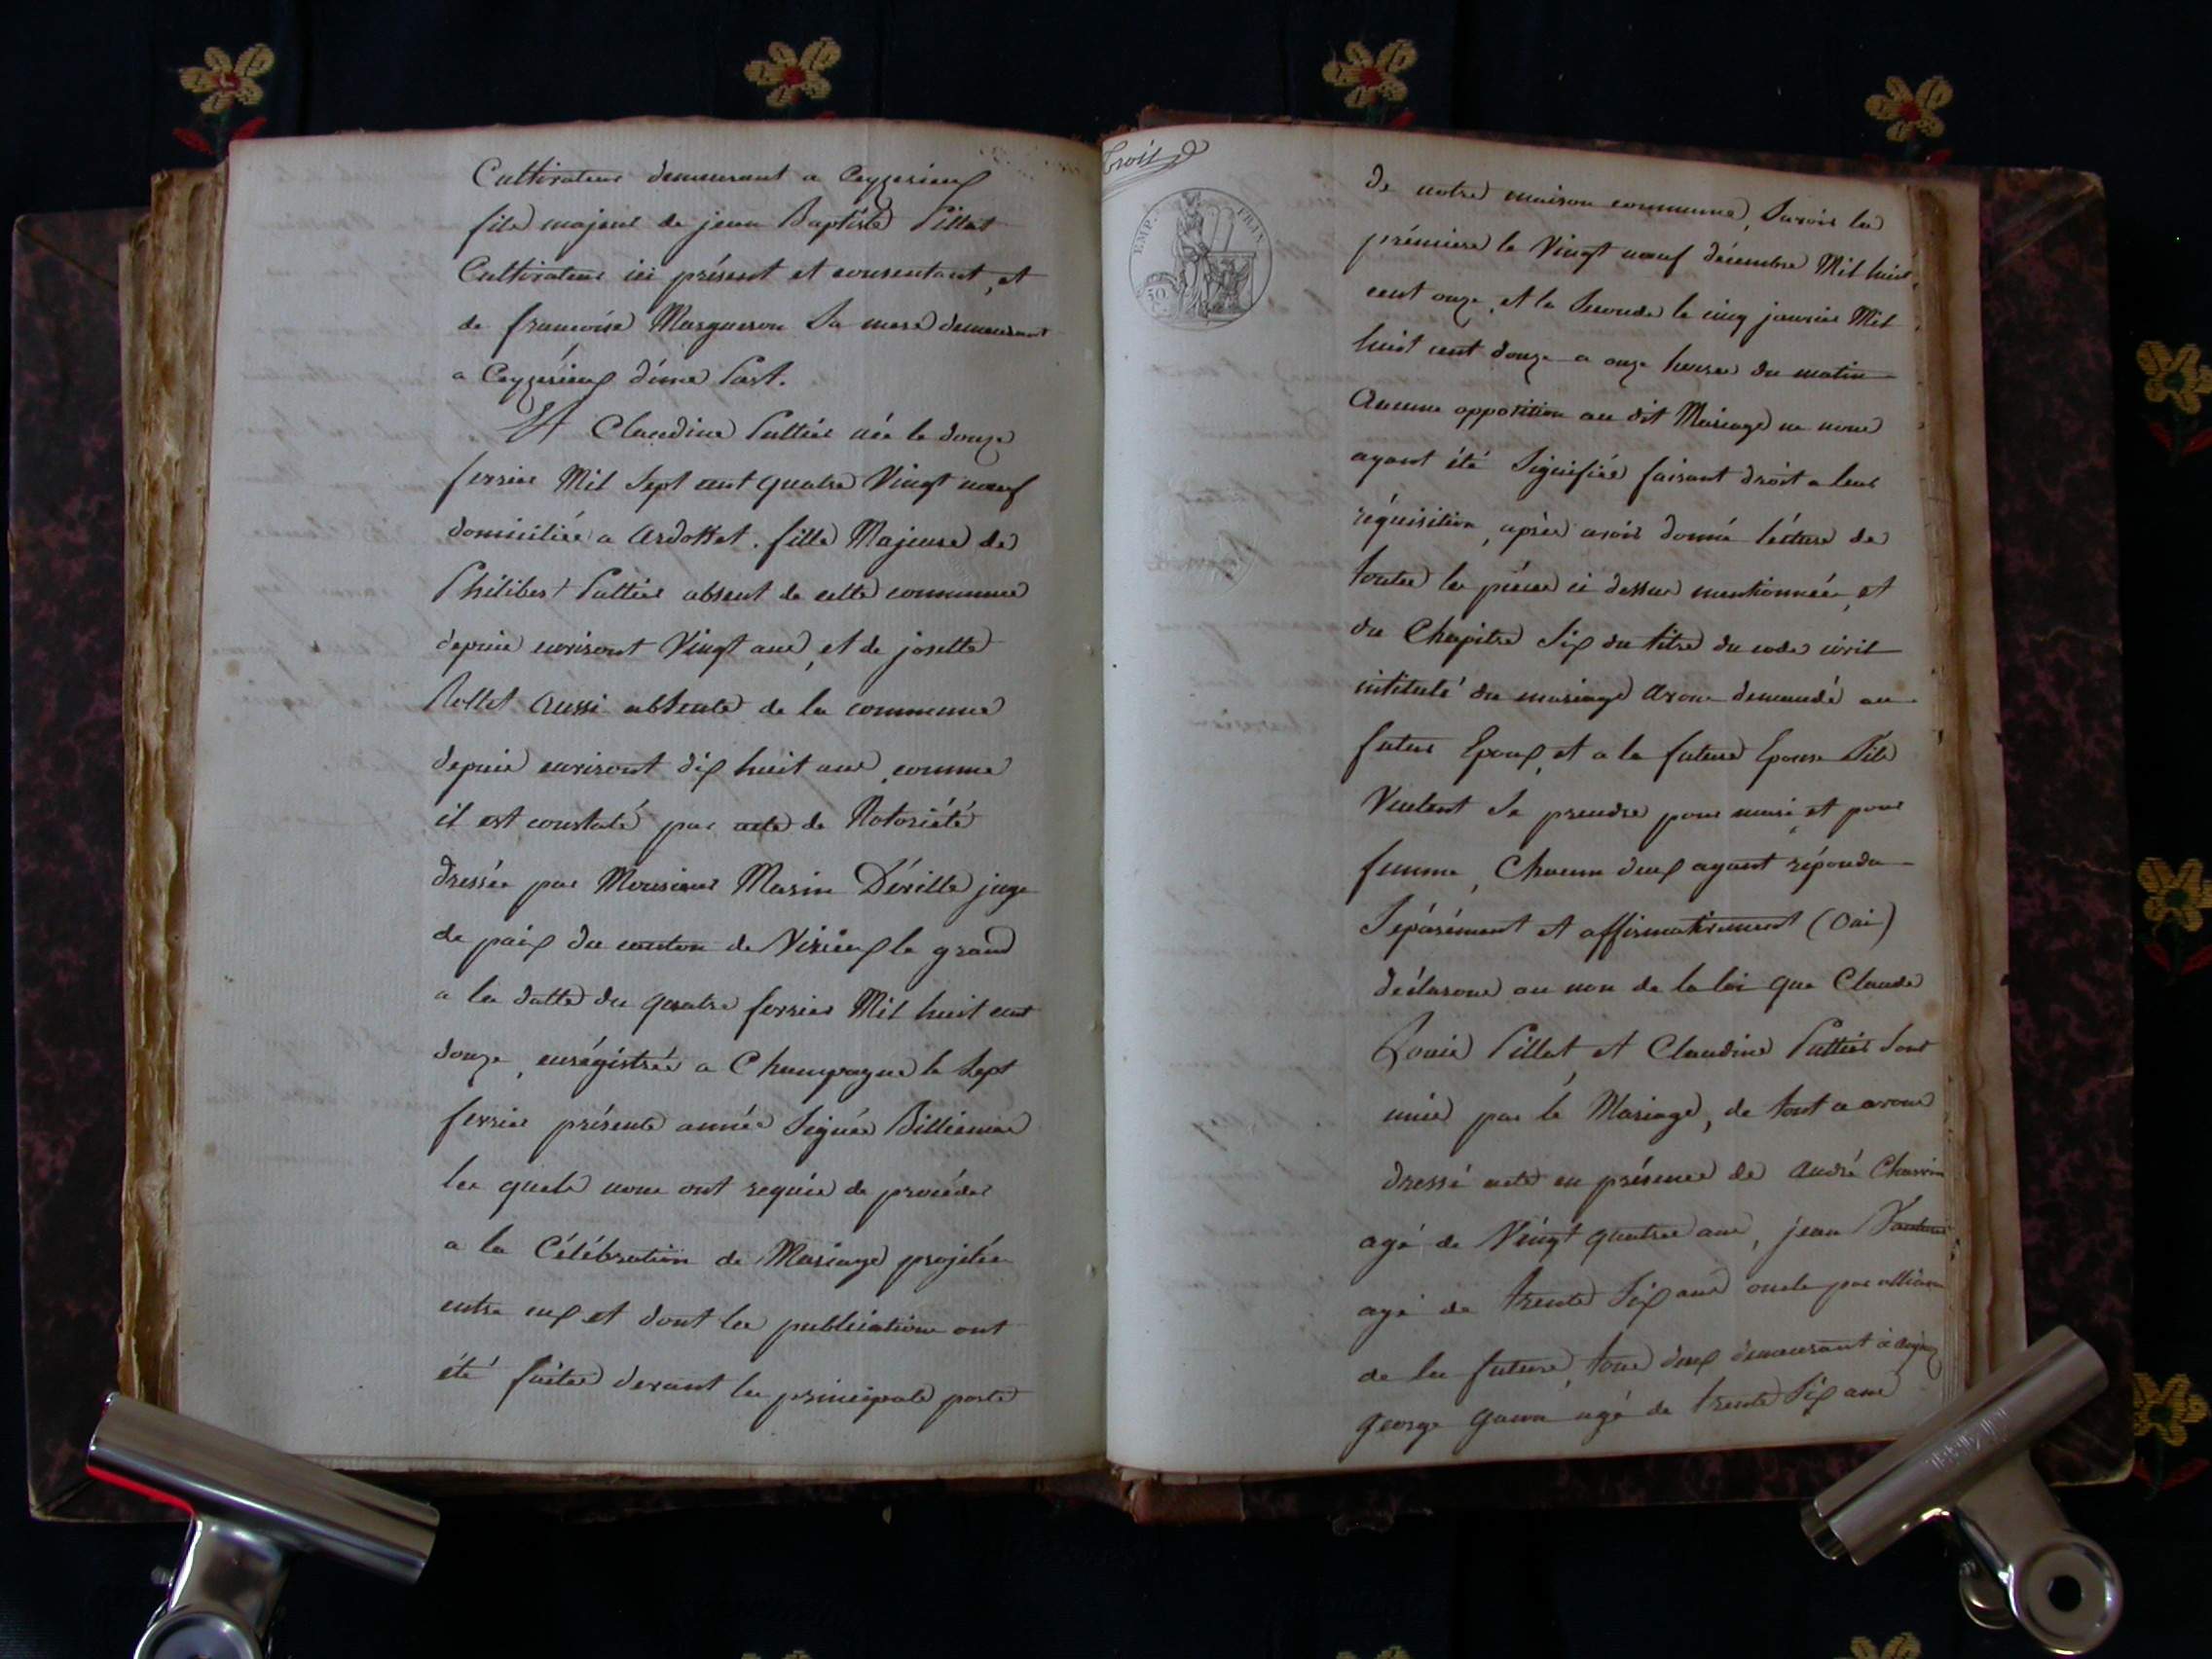 Cultivateur demeurant a Ceyzerieux
fils majeur de jean Baptiste Pillat
Cultivateur ici présent et consentant, et
de francoise Margueron Sa mere demeurant
a Ceyzérieux d'une Part.
Et Claudine Puttier née le douze
fevrier Mil Sept cent quatre Vingt neuf
domiciliée a ardosset. fille Majeure de
Philibert Puttier absent de cette commune
depuis environt Vingt ans, et de josette
Rollet aussi absente de la commune
depuis environt dix huit ans, comme
il est constaté par acte de Notoriété
dressée par Monsieur Marin Déville juge
de paix du canton de Virieux le grand
a la datte du quatre fevrier Mil huit cent
douze, enrégistrée a Champagne le Sept
fevrier présente année Signée Billiemaz
les quels nous ont requis de procéder
a la Célébration de Mariage projetée
entre eux et dont les publications ont
été faites devant la principale porte
Trois
EMP. FRAN.
50 C
de notre maison commune, Savoir la
prémiere le Vingt neuf décembre Mil huit
cent onze, et la Seconde le cinq janvier Mil
huit cent douze a onze heures du matin
Aucune opposition au dit Mariage ne nous
ayant été Signifiée faisant droit a leur
réquisition, après avoir donné lécture de
toutes les pièces ci dessus mentionnées, et
du Chapitre Six du titre du code civil
intitulé du mariage avons demandé au
futur Epoux, et a la future Epouse S'ils
Veulent Se prendre pour mari, et pour
femme, Chacun deux ayant répondu
Sépárément et affirmativement (Oui)
déclarons au nom de la loi que Claude
Louis Pillat, et Claudine Puttier Sont
unis par le Mariage, de tout a avons
dressé acte en présence de André Charvin
agé de Vingt quatre ans, jean
agé de trente Six ans oncle par alliance
de la future, tous deux demeurant à
george agé de trente Six ans